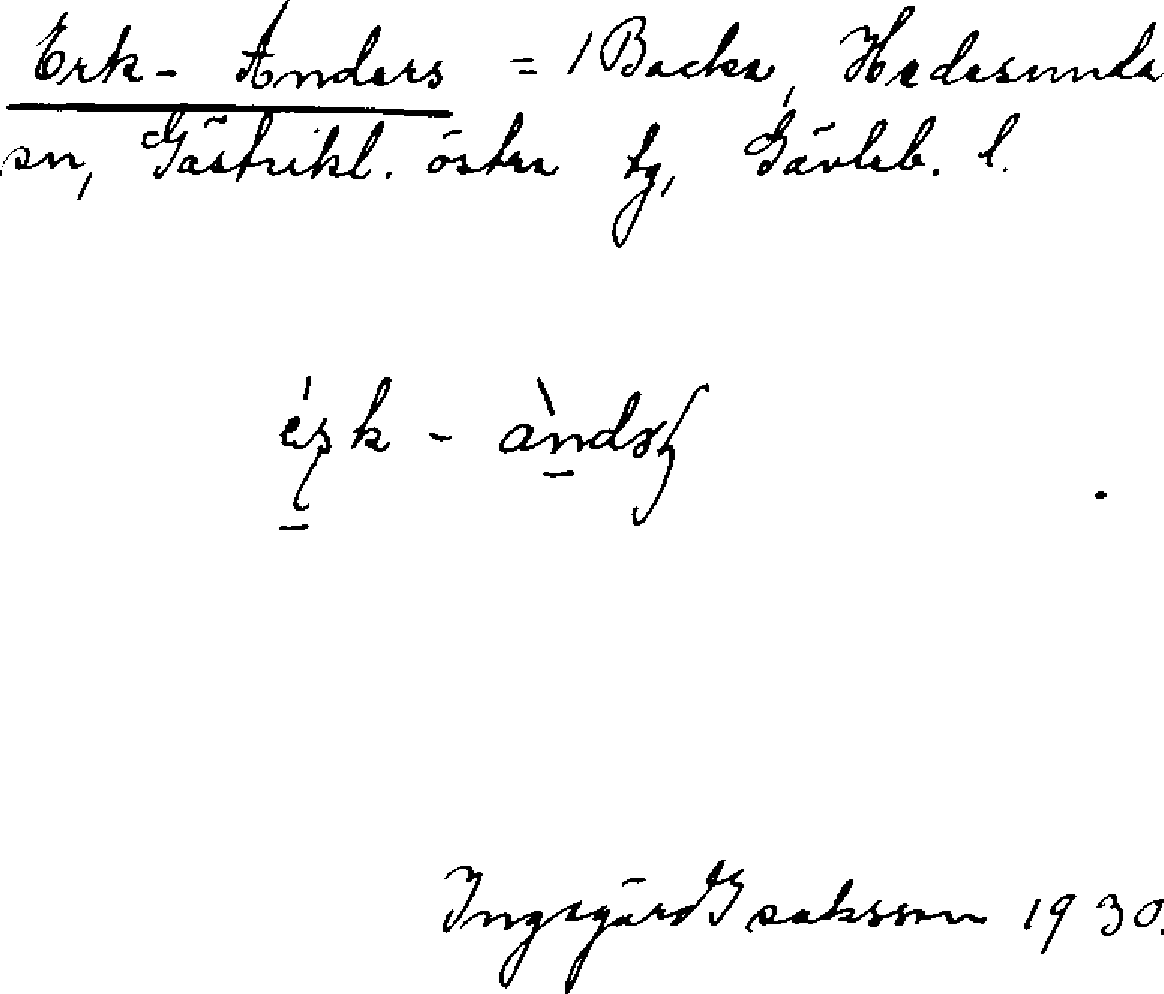 Erk- Anders = /Backa, Hedesunda
sn, Gästrikl. östra tg, Gävleb. l.
Ingegärd Isaksson 1930.